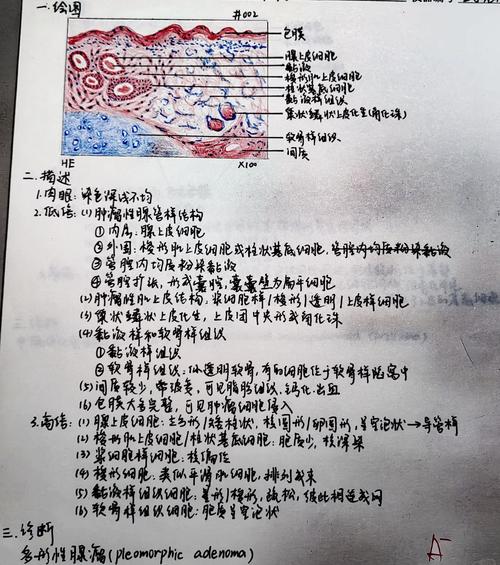 一.绘图
#002
包膜
腺上皮细胞
黏液
梭形肌上皮细胞
柱状基底细胞
黏液样组织
巢状鳞状上皮化生(角化珠)
软骨样组织
间质
HE
X100
二.描述
1.肉眼:染色深浅不均
2.低倍:(1)肿瘤性腺管样结构
①内层:腺上皮细胞
②外围:梭形肌上皮细胞或柱状基底细胞,管腔内均质粉染黏液
③管腔内均质粉染黏液
④管腔扩张,形成囊腔,囊壁为扁平细胞
(2)肿瘤性肌上皮结构:浆细胞样/梭形/透明/上皮样细胞
(3)巢状鳞状上皮化生,上皮团中央形成角化珠
(4)黏液样和软骨样组织
①黏液样组织
②软骨样组织:似透明软骨,有的细胞位于软骨样陷窝中
(5)间质较少,带玻变,可见脂肪组织、钙化出血
(6)包膜大多完整,可见肿瘤细胞侵入
3.高倍:(1)腺上皮细胞:立方形/矮柱状,核圆形/卵圆形,呈空泡状→导管样
(2)梭形肌上皮细胞/柱状基底细胞:胞质少,核深染
(3)浆细胞样细胞:核偏位
(4)梭形细胞:类似平滑肌细胞,排列成束
(5)黏液样组织细胞:星形/梭形,疏松,彼此相连成网
(6)软骨样组织细胞:胞质呈空泡状
三.诊断
多形性腺瘤(pleomorphic adenoma)
A-